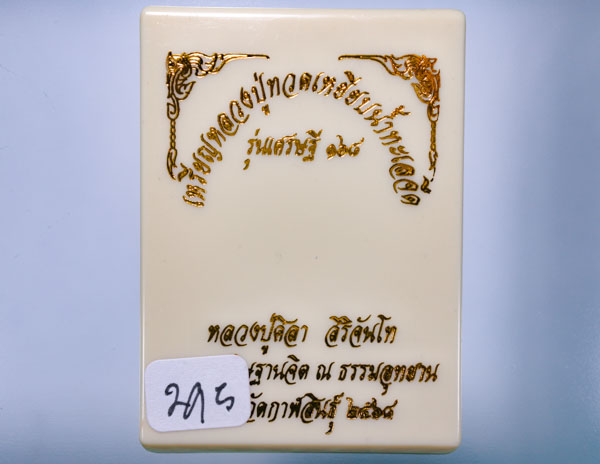 เหรียญหลวงปู่ทวดเหยียบน้ำทะเลจืด
รุ่นเศรษฐี ๑๖๘
หลวงปู่ศิลา สิริจันโท
ษฐานจิต ณ ธรรมอุทยาน
วัดกาฬสินธุ์ ๒๕๖๘